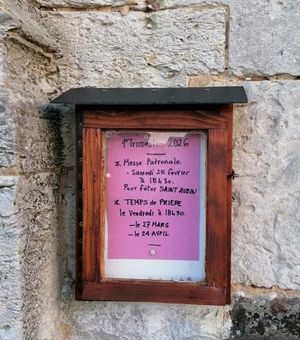 1er Trimestre 2026
* Messe Patronale.
- Samedi 28 février
à 18h30.
Pour fêter SAINT AUBIN
* TEMPS de PRIERE
le Vendredi à 18h30.
- le 27 MARS
- le 24 AVRIL